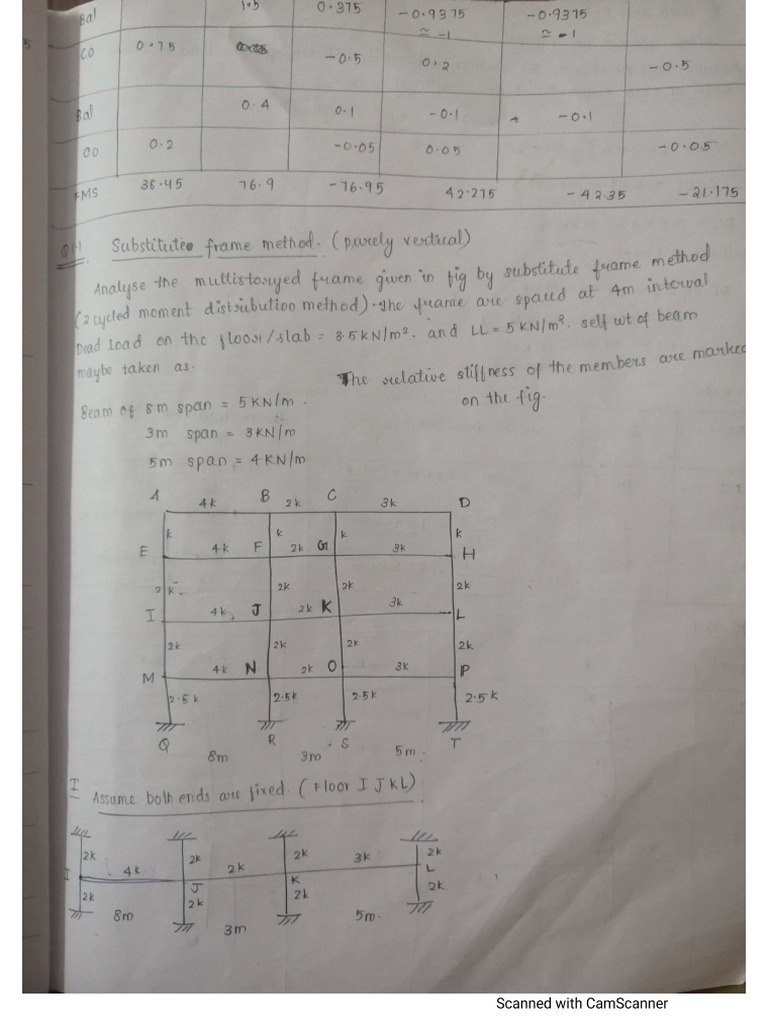 Bal 1.5 0.375 -0.9375 -0.9375
≃ -1 ≃ -1
CO 0.75 -0.5 0.2 -0.5
Bal 0.4 0.1 -0.1 -0.1
CO 0.2 -0.05 0.05 -0.05
FMS 38.45 76.9 -76.95 42.275 -42.35 -21.175
Q1. Substitute frame method. (purely vertical)
Analyse the multistoryed frame given in fig by substitute frame method
(2 cycled moment distribution method). The frame are spaced at 4m interval
Dead load on the floor/slab = 3.5kN/m². and LL = 5 KN/m³. self wt of beam
maybe taken as.
The relative stiffness of the members are marked
on the fig.
Beam of 8m span = 5 KN/m.
3m span = 3KN/m
5m span = 4 KN/m
A 4k B 2k C 3k D
k k k k
E 4k F 2k G 3k H
2k 2k 2k 2k
I 4k J 2k K 3k L
2k 2k 2k 2k
M 4k N 2k O 3k P
2.5k 2.5k 2.5k 2.5k
Q R S T
8m 3m 5m.
I Assume both ends are fixed. (Floor IJKL)
2k 2k 2k 2k
I 4k J 2k K 3k L
2k 2k 2k 2k
8m 3m 5m.
Scanned with CamScanner